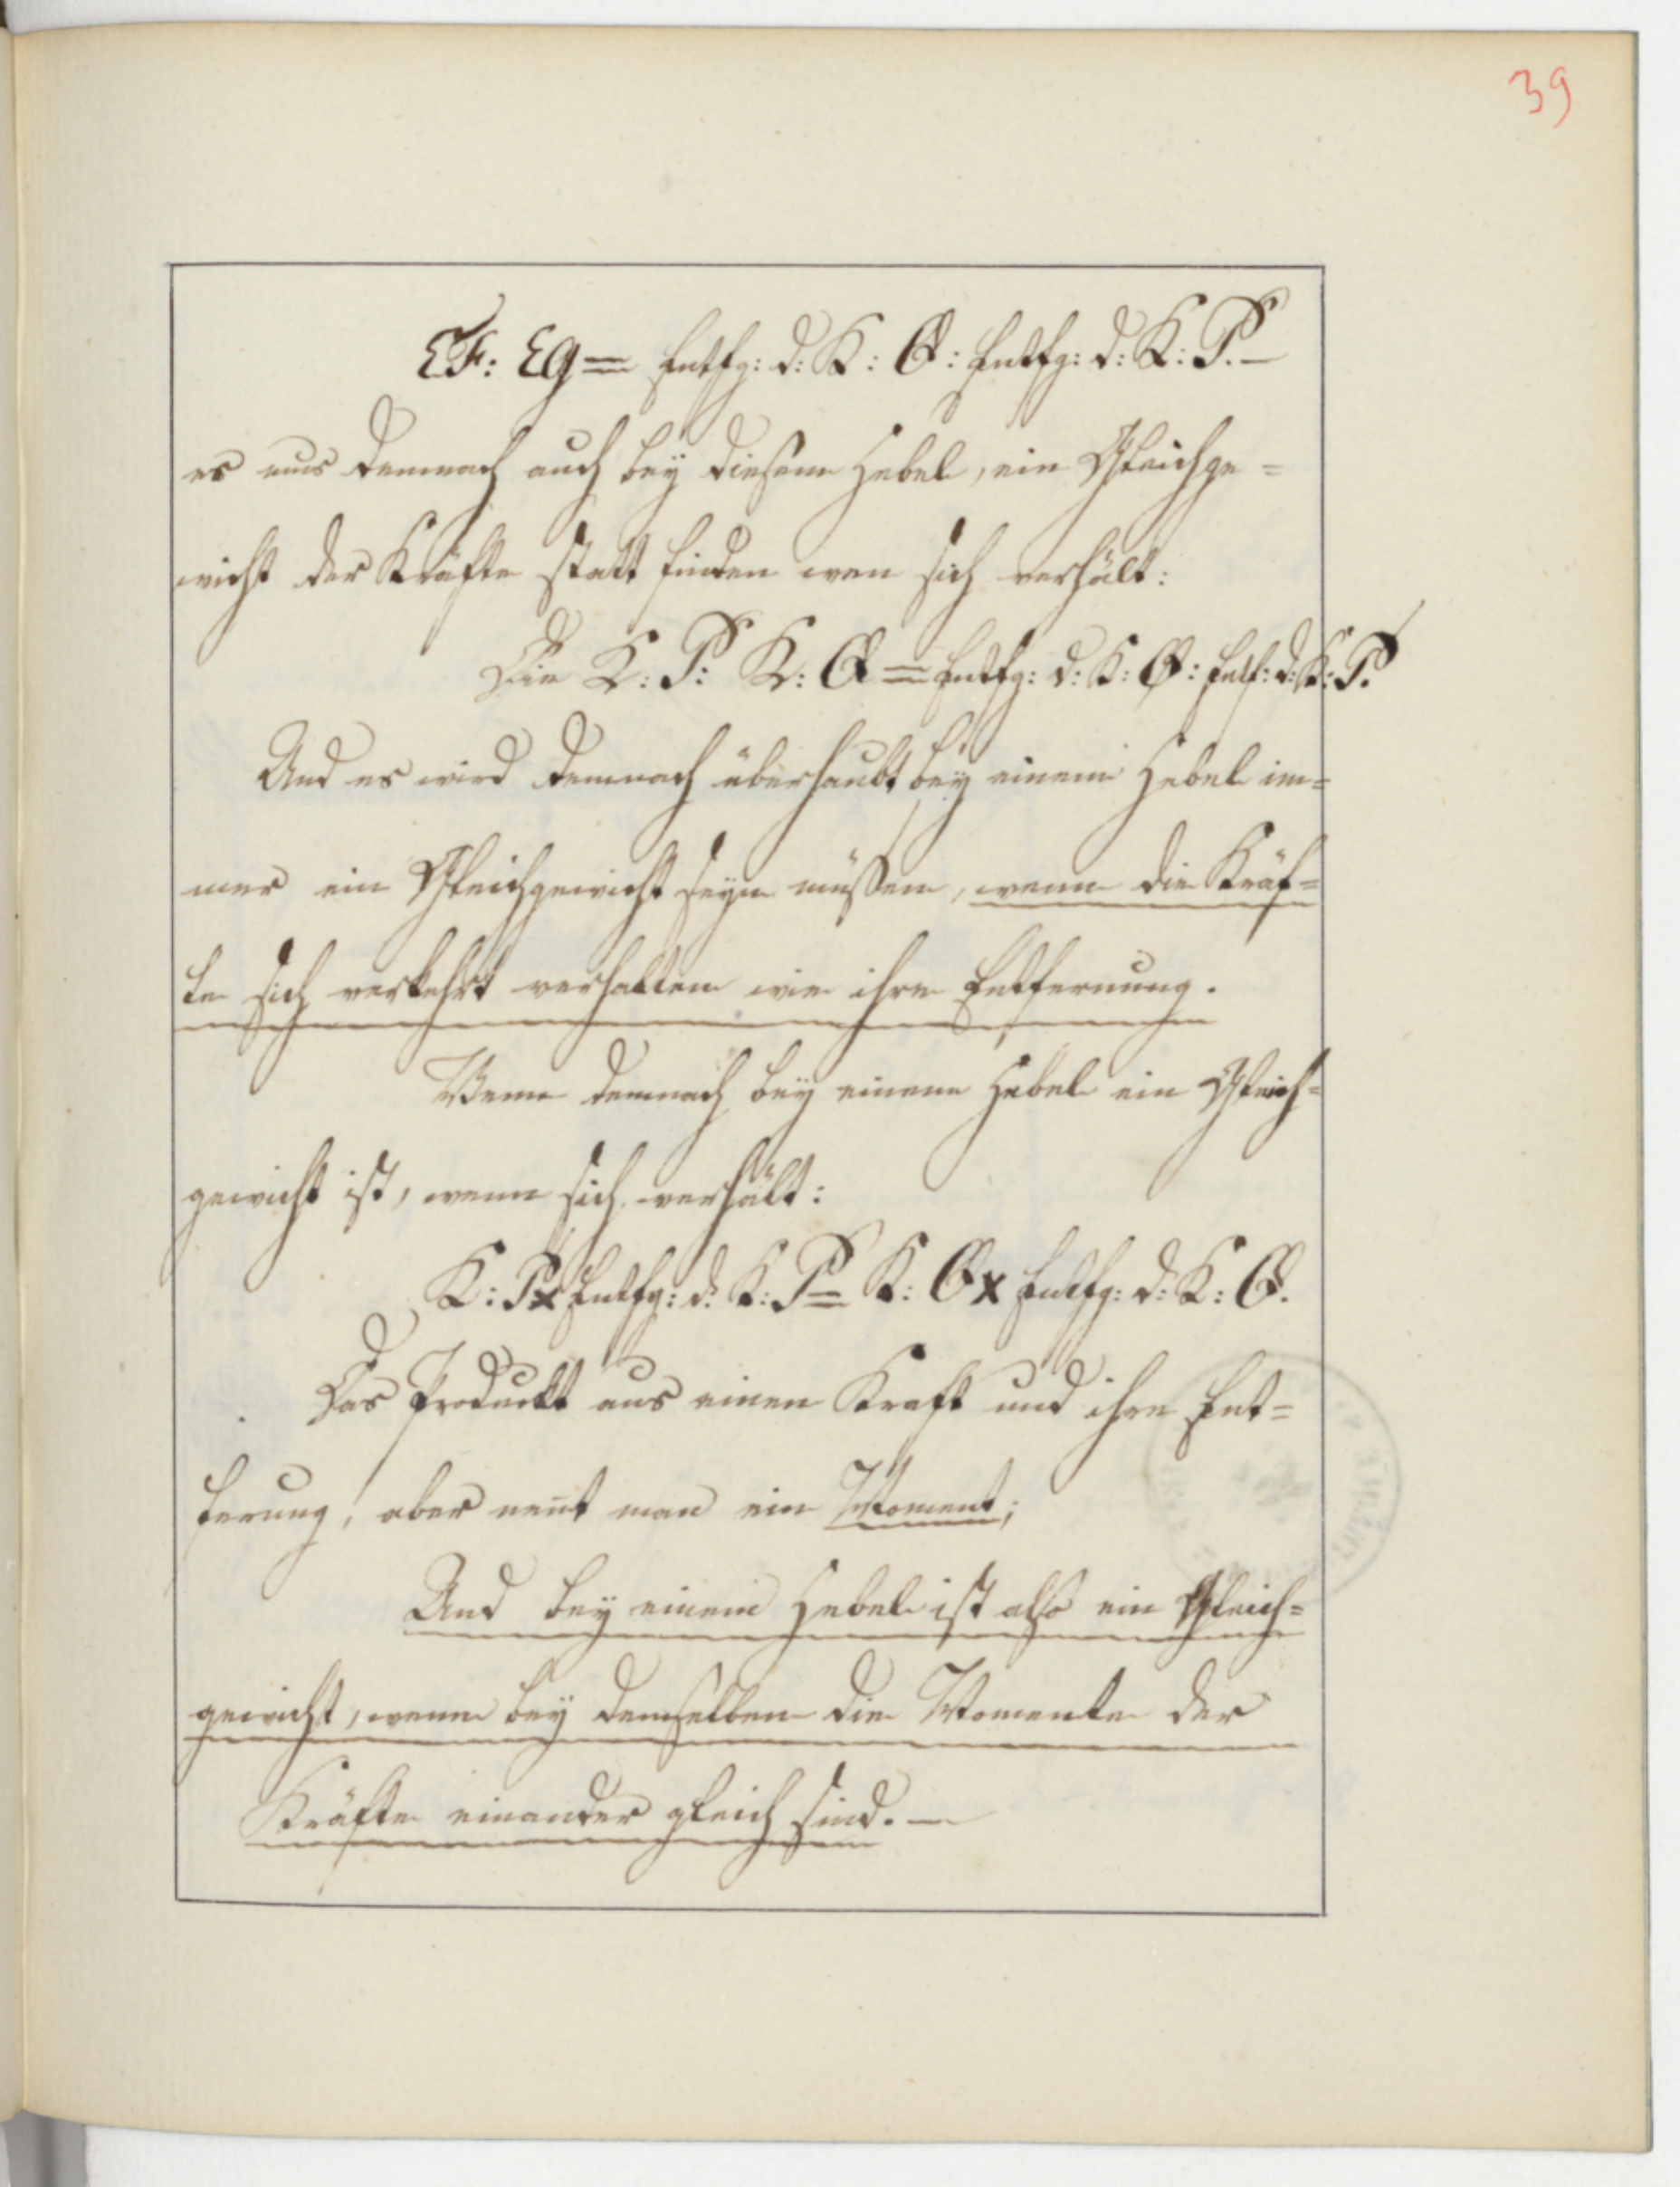 39
EF: EG = Entfg: d: K: Q: Entfg: d: K: P. —
es mus demnach auch beÿ diesem Hebel, ein Gleichge=
wicht der Kräfte statt finden wen sich verhält:
Die K: P: K: Q = Entfg: d: K: Q: Entf: d: K: P.
Und es wird demnach überhaubt beÿ einem Hebel im=
mer ein Gleichgewicht seyn müßen, wenn die Kräf=
te sich verkehrt verhalten wie ihre Entfernung.
Wenn demnach beÿ einem Hebel ein Gleich=
gewicht ist, wenn sich verhält:
K: P x Entfg: d: K: P = K: Q x Entfg: d: K: Q.
Das Produckt aus einer Kraft und ihre Ent=
fernung, aber nent man ein Moment;
Und beÿ einem Hebel ist also ein Gleich=
gewicht, wenn beÿ demselben die Momente der
Kräfte einander gleich sind. —